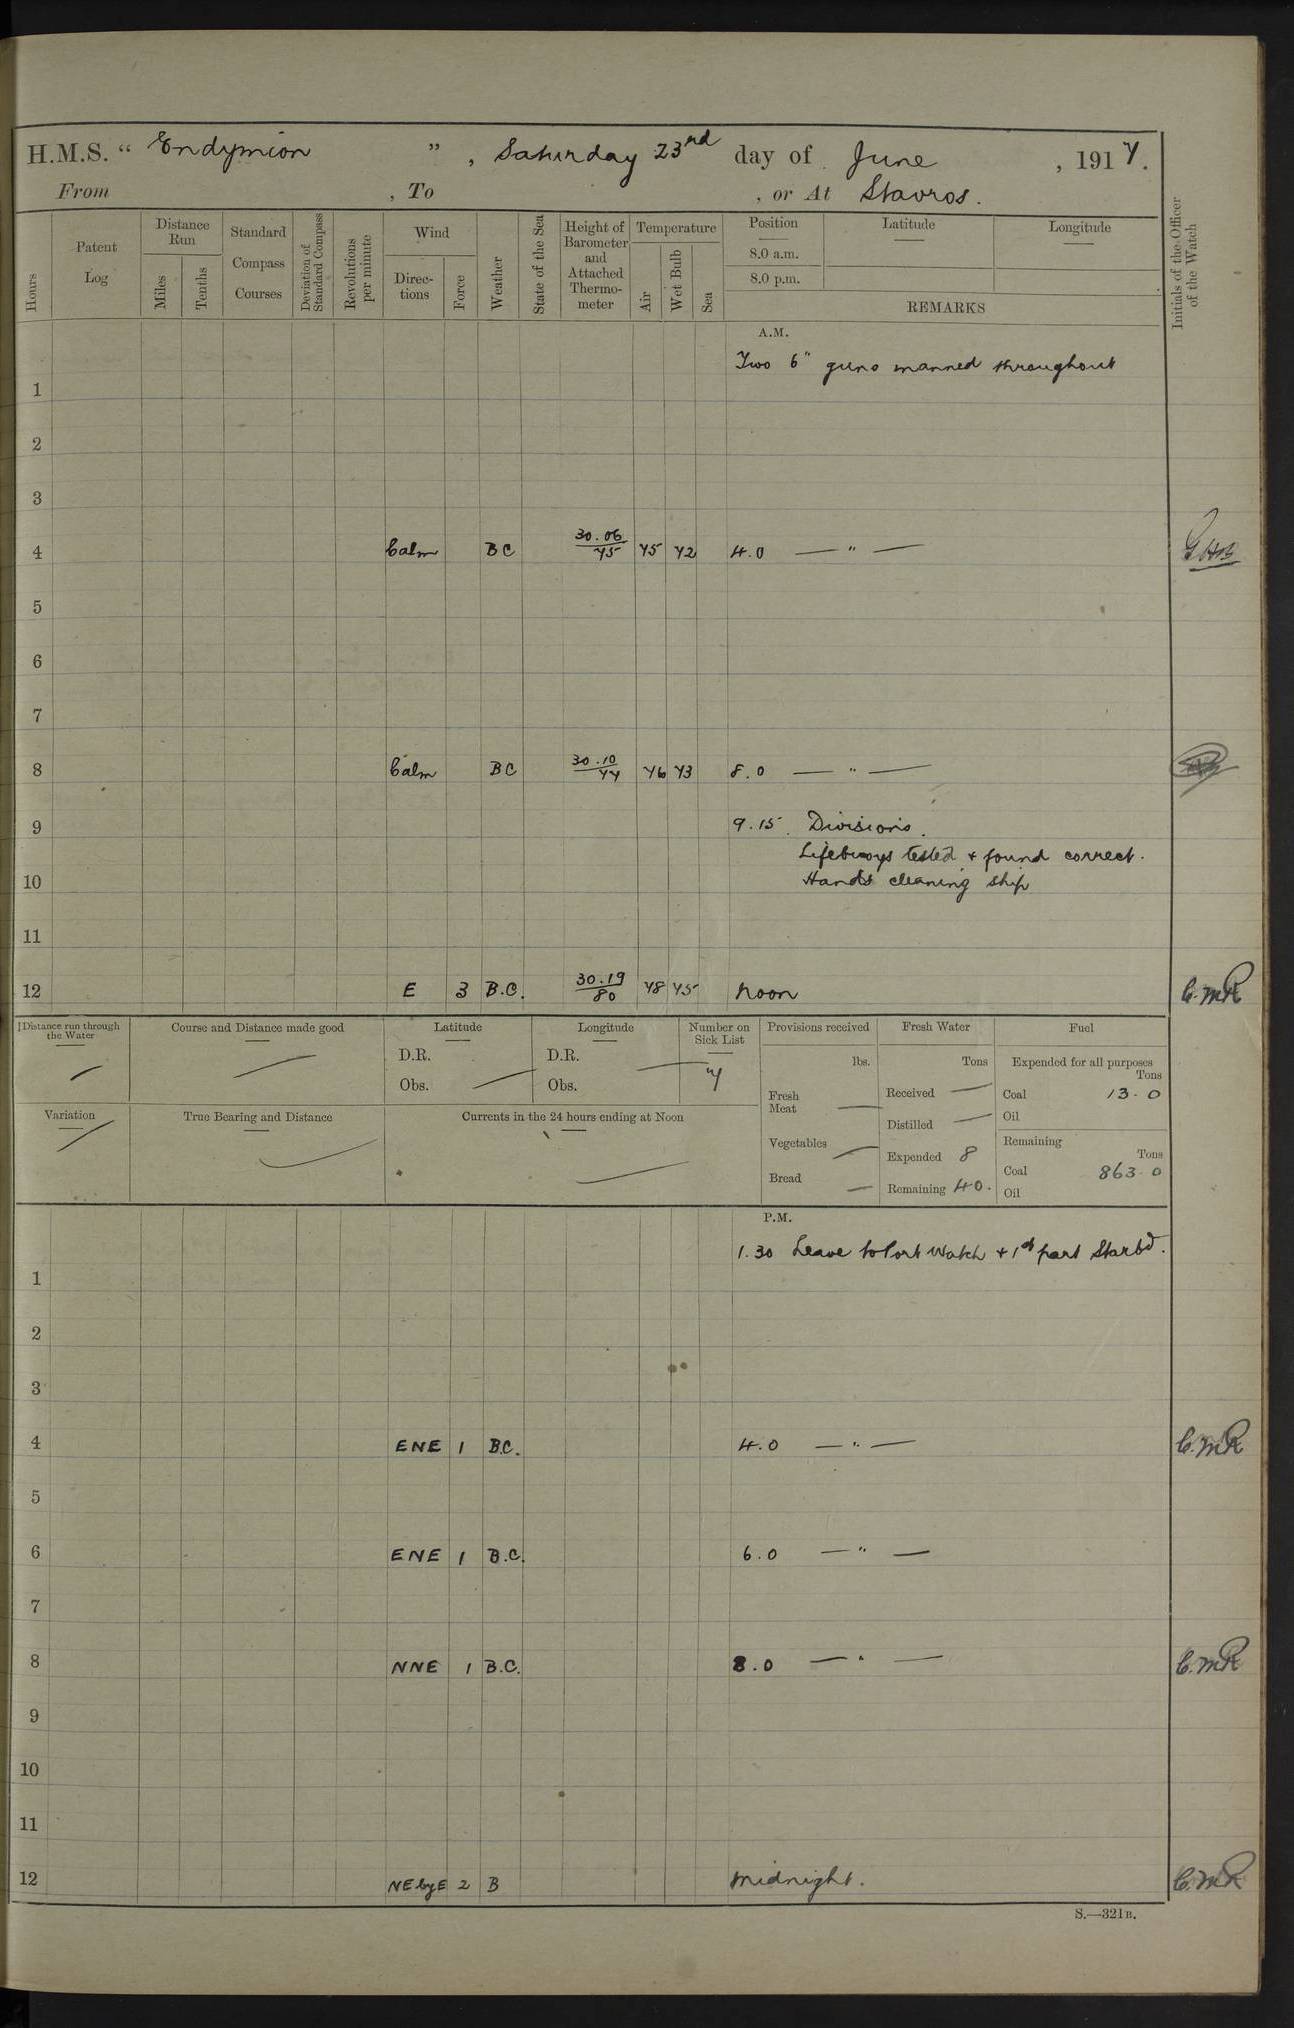 H.M.S. “ Endymion ” , Saturday 23rd day of June , 1917.
From , To , or At Stavros.
Hours
Patent Log
Distance Run
Miles
Tenths
Standard Compass Courses
Deviation of Standard Compass
Revolutions per minute
Wind
Direc-tions
Force
Weather
State of the Sea
Height of Barometer and Attached Thermo-meter
Temperature
Air
Wet Bulb
Sea
Position
8.0 a.m.
8.0 p.m.
Latitude
Longitude
REMARKS
Initials of the Officer of the Watch
A.M.
Two 6" guns manned throughout
1
2
3
4 Calm BC 30.06/75 75 72 4.0 — " —
5
6
7
8 Calm BC 30.10/77 76 73 8.0 — " —
9 9.15. Divisions.
Lifebuoys tested + found correct.
10 Hands cleaning ship
11
12 E 3 B.C. 30.19/80 78 75 Noon C.MR
Distance run through the Water
Course and Distance made good
Latitude
D.R.
Obs.
Longitude
D.R.
Obs.
Number on Sick List
7
Variation
True Bearing and Distance
Currents in the 24 hours ending at Noon
Provisions received
lbs.
Fresh Meat
Vegetables
Bread
Fresh Water
Tons
Received
Distilled
Expended 8
Remaining 40.
Fuel
Expended for all purposes
Tons
Coal 13.0
Oil
Remaining
Tons
Coal 863.0
Oil
P.M.
1.30 Leave to Port Watch + 1st part Starbd.
1
2
3
4 ENE 1 B.C. 4.0 — " — C.MR
5
6 ENE 1 B.C. 6.0 — " —
7
8 NNE 1 B.C. 8.0 — " — C.MR
9
10
11
12 NEbyE 2 B Midnight. C.MR
S.—321B.